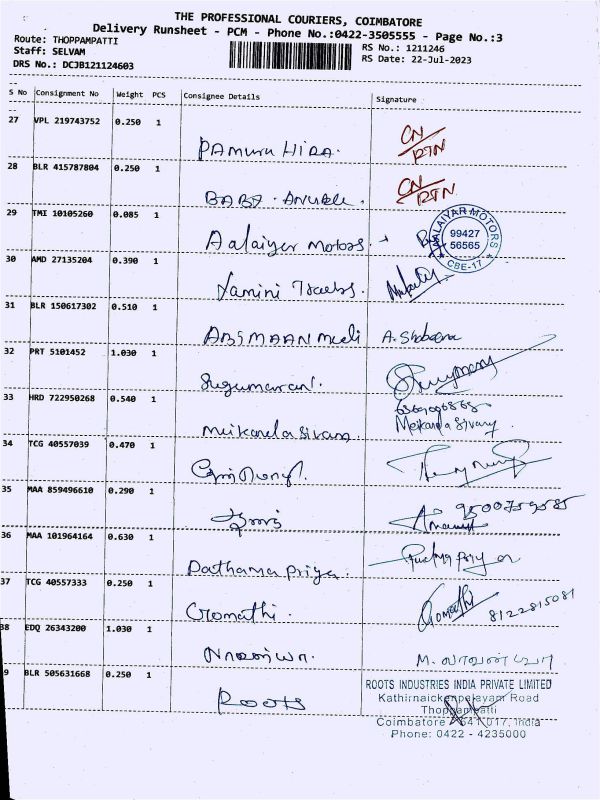 THE PROFESSIONAL COURIERS, COIMBATORE
Delivery Runsheet - PCM - Phone No.:0422-3505555 - Page No.:3
Route: THOPPAMPATTI
Staff: SELVAM
RS No.: 1211246
DRS No.: DCJB121124603
RS Date: 22-Jul-2023
S No Consignment No Weight PCS Consignee Details Signature
27 VPL 219743752 0.250 1
CN/RTN
PAMURU HIRA.
28 BLR 415787804 0.250 1
CN/RTN
BABJ.
29 TMI 10105260 0.085 1
Aalaiyar motors.
MALAIYAR MOTORS
99427
56565
CBE-17
30 AMD 27135204 0.390 1
Yamini
31 BLR 150617302 0.510 1
ABIMAAN A. Shobana
32 PRT 5101452 1.030 1
Sugumaran.
33 HRD 722950268 0.540 1
Meikandasivam Meikanda Sivam
34 TCG 40557039 0.470 1
35 MAA 859496610 0.290 1
36 MAA 101964164 0.630 1
Pathama Priya
37 TCG 40557333 0.250 1
Gomathi Gomathi 8122815081
38 EDQ 26343200 1.030 1
லாவண்யா M. லாவண்யா
9 BLR 505631668 0.250 1
ROOTS
ROOTS INDUSTRIES INDIA PRIVATE LIMITED
Kathirnaickenpalayam Road
Thoppampatti
Coimbatore - 641 017, India
Phone: 0422 - 4235000